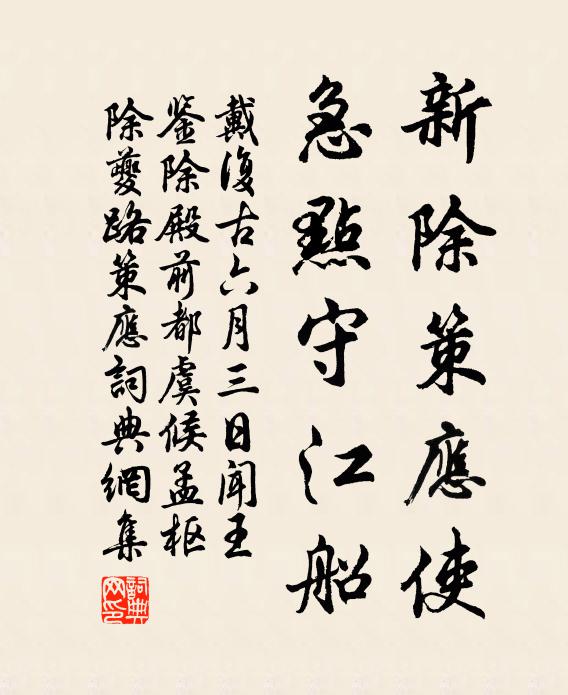 新除策應使
急點守江船
戴復古六月三日聞王
鉴除殿前都虞候孟枢
除夔路策應詞典網集
詞典網印